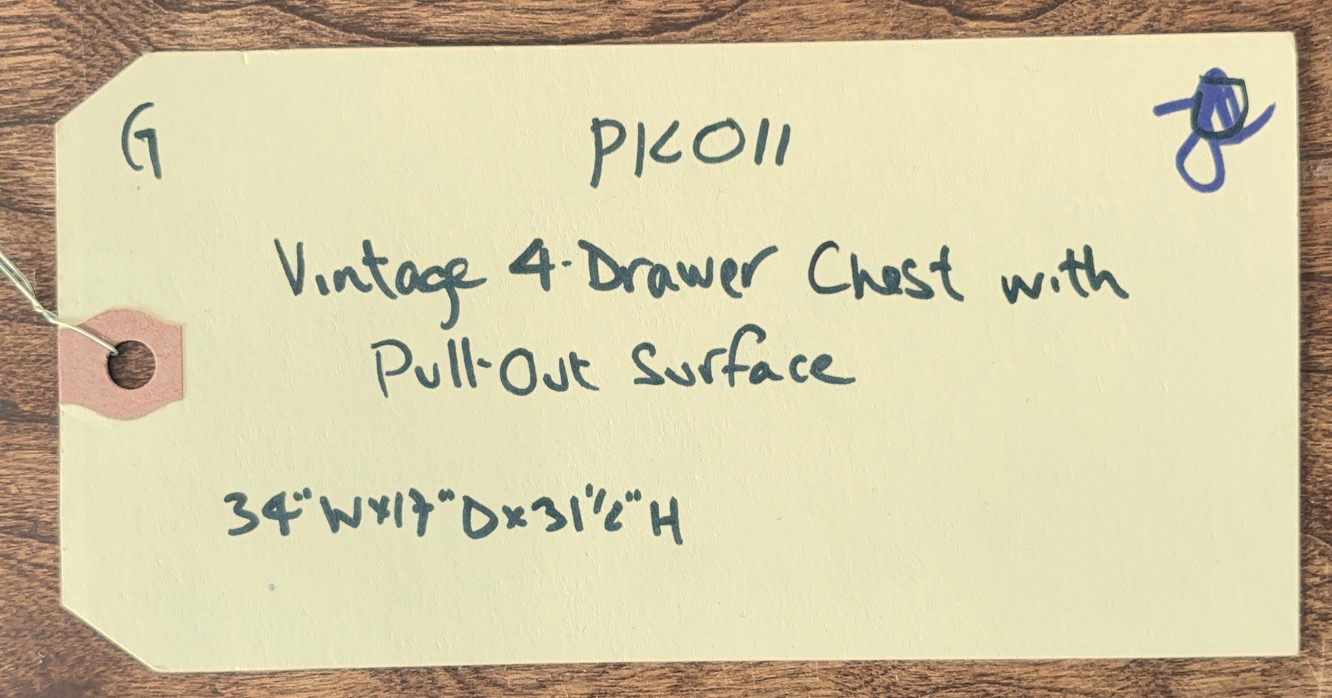 G PK011
Vintage 4-Drawer Chest with
Pull-Out Surface
34"W x 17"D x 31 1/2"H